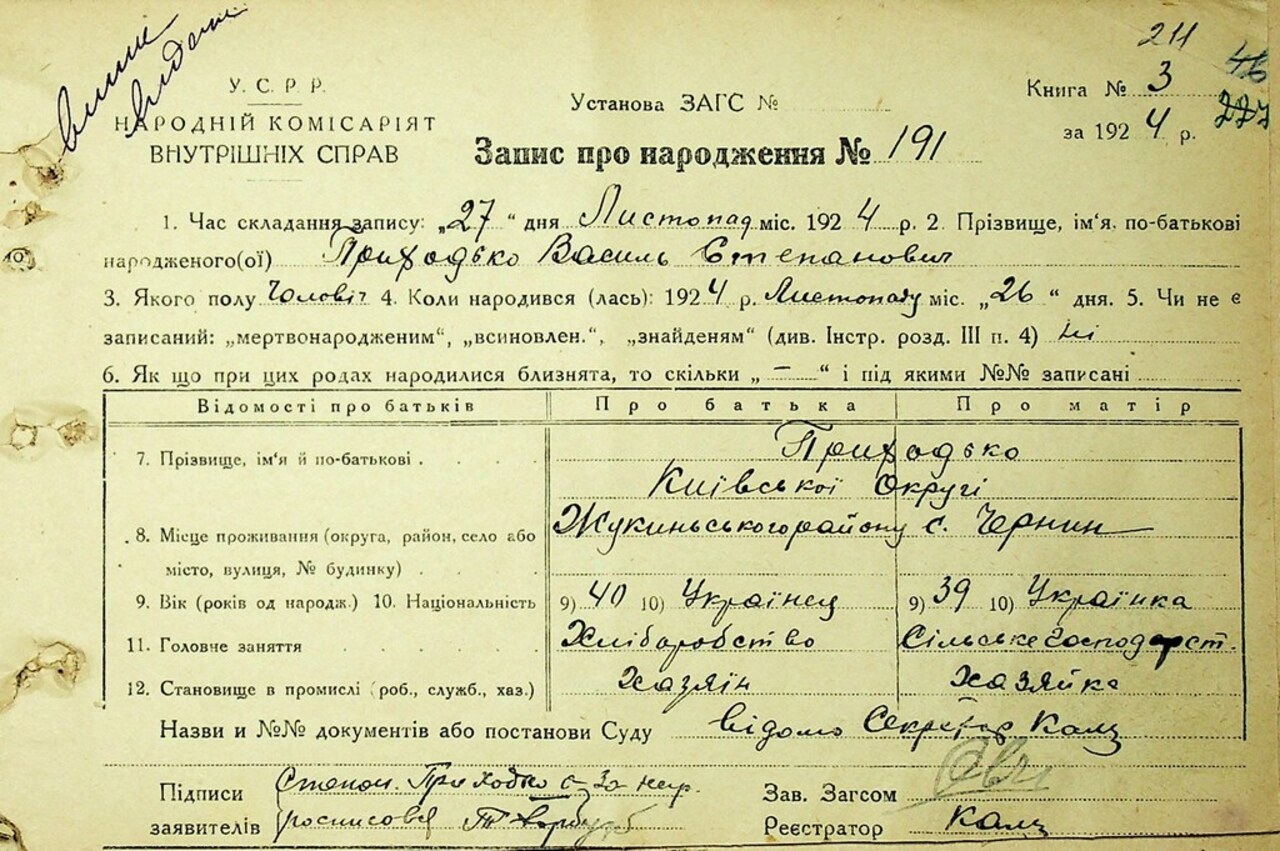 211
46
227
випис
видано
У. С. Р. Р.
НАРОДНІЙ КОМІСАРІЯТ
ВНУТРІШНІХ СПРАВ
Установа ЗАГС №
Книга № 3
за 1924 р.
Запис про народження № 191
1. Час складання запису: „27“ дня Листопад міс. 1924 р. 2. Прізвище, ім'я, по-батькові
народженого(ої) Приходько Василь Степанович
3. Якого полу Чоловіч 4. Коли народився (лась): 1924 р. Листопаду міс. „26“ дня. 5. Чи не є
записаний: „мертвонародженим“, „всиновлен.“, „знайденям“ (див. Інстр. розд. III п. 4) ні
6. Як що при цих родах народилися близнята, то скільки „—“ і під якими №№ записані
Відомості про батьків Про батька Про матір
7. Прізвище, ім'я й по-батькові Приходько
Київської Округі
8. Місце проживання (округа, район, село або Жукиньського району с. Чернин
місто, вулиця, № будинку)
9. Вік (років од народж.) 10. Національність 9) 40 10) Українец 9) 39 10) Українка
11. Головне заняття Хліборобство Сільське господарст.
12. Становище в промислі (роб., служб., хаз.) Хазяїн Хазяйка
Назви и №№ документів або постанови Суду відомо Секретар Калц
Підписи Степан. Приходько а За нег.
Зав. Загсом
заявителів росписовся
Реєстратор Калц